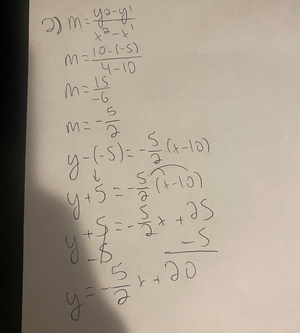 2) m = y2-y1 / x2-x1
m = 10-(-5) / 4-10
m = 15 / -6
m = -5/2
y-(-5) = -5/2 (x-10)
y+5 = -5/2 (x-10)
y+5 = -5/2 x + 25
-5 -5
y = -5/2 x + 20